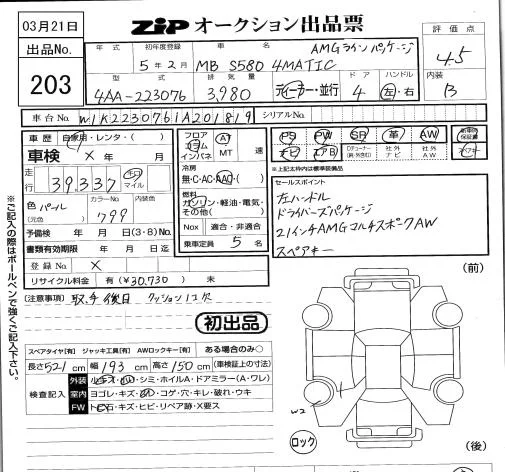 03月21日
ZIP オークション出品票
出品No.
203
年式
初年度登録
5年2月
車名
MB S580 4MATIC
AMGラインパッケージ
評価点
4.5
型式
4AA-223076
排気量
3,980
ディーラー・並行
ドア
4
ハンドル
左・右
内装
B
車台No.
W1K2230761A201819
シリアルNo.
車歴
自家用・レンタ・( )
車検 × 年 月
走行
39,337
キロ
マイル
色
パール
(元色)
カラーNo.
799
内装色
予備検 年 月 日(3・8)No.
書類有効期限 年 月 日迄
登録No. ×
リサイクル料金 有(¥30,730) 未
フロア
コラム
インパネ
AT
MT
速
冷房
無・C・AC・AAC・( )
燃料
ガソリン・軽油・電気・
その他( )
Nox 適合・非適合
乗車定員 5 名
PS PW SR 革 AW
ナビ エアB
社外
ナビ
社外
AW
新車時
保証書
※上記太枠内は標準装備品
セールスポイント
左ハンドル
ドライバーズパッケージ
21インチAMGマルチスポークAW
スペアキー
(注意事項)
取・手後日 クッション1コ欠
初出品
スペアタイヤ[有] ジャッキ工具[有] AWロックキー[有] ある場合のみ○
長さ521cm 幅193cm 高さ150cm (車検証上の寸法)
検査記入
外装 小キズ・凹・シミ・ホイルA・ドアミラー(A・ワレ)
室内 ヨゴレ・キズ・凹・コゲ・穴・キレ・破れ・ウキ
FW トビ石・キズ・ヒビ・リペア跡・X要ス
(前)
W2
ロック
(後)
※ご記入の際はボールペンで強くご記入下さい。